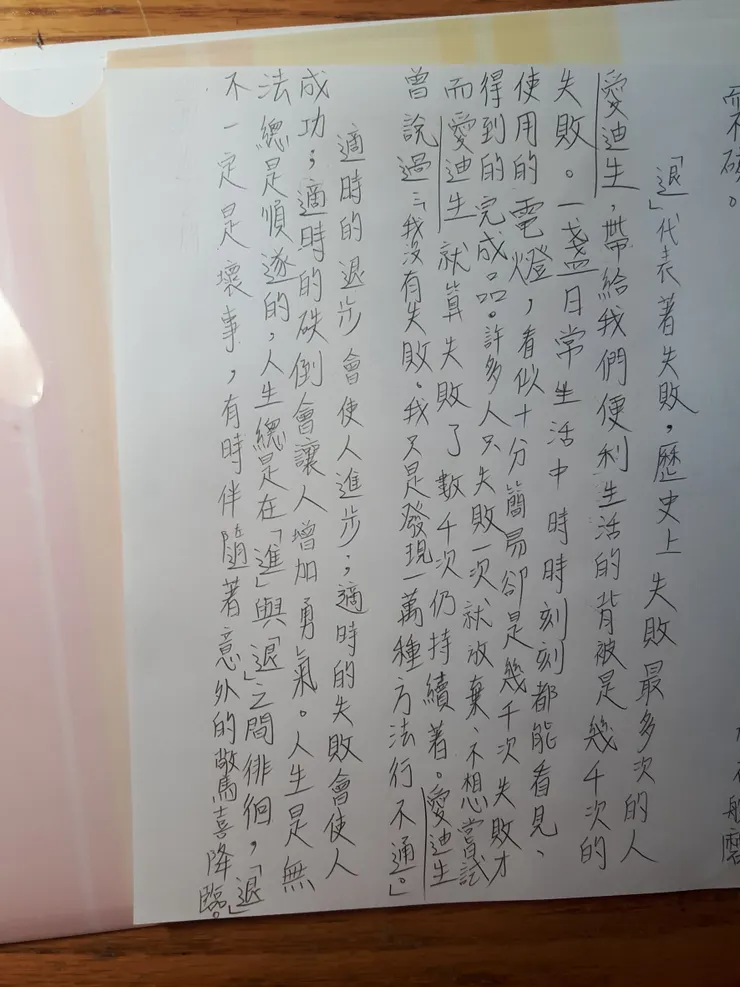 而不破。
「退」代表著失敗，歷史上失敗最多次的人
愛迪生，帶給我們便利生活的背被是幾千次的
失敗。一盞日常生活中時時刻刻都能看見、
使用的電燈，看似十分簡易卻是幾千次失敗才
得到的完成品。許多人只失敗一次就放棄、不想嘗試
而愛迪生就算失敗了數千次仍持續著。愛迪生
曾說過：「我沒有失敗。我只是發現一萬種方法行不通。」
適時的退步會使人進步；適時的失敗會使人
成功；適時的跌倒會讓人增加勇氣。人生是無
法總是順遂的，人生總是在「進」與「退」之間徘徊，「退」
不一定是壞事，有時伴隨著意外的驚喜降臨。